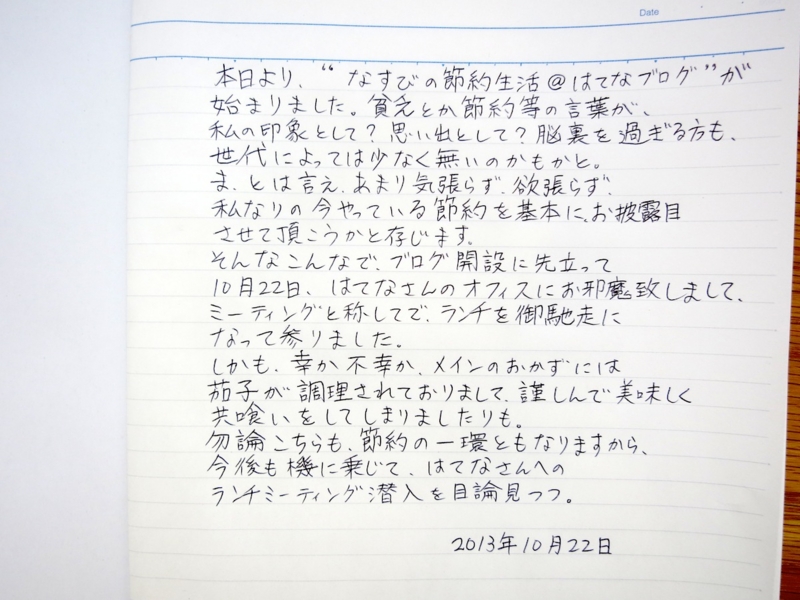 Date
本日より、“なすびの節約生活@はてなブログ”が
始まりました。貧乏とか節約等の言葉が、
私の印象として?思い出として?脳裏を過ぎる方も、
世代によっては少なく無いのかもかと。
ま、とは言え、あまり気張らず、欲張らず、
私なりの今やっている節約を基本に、お披露目
させて頂こうかと存じます。
そんなこんなで、ブログ開設に先立って
10月22日、はてなさんのオフィスにお邪魔致しまして、
ミーティングと称してで、ランチを御馳走に
なって参りました。
しかも、幸か不幸か、メインのおかずには
茄子が調理されておりまして、謹しんで美味しく
共喰いをしてしまりましたりも。
勿論こちらも、節約の一環ともなりますから、
今後も機に乗じて、はてなさんへの
ランチミーティング潜入を目論見つつ。
2013年10月22日